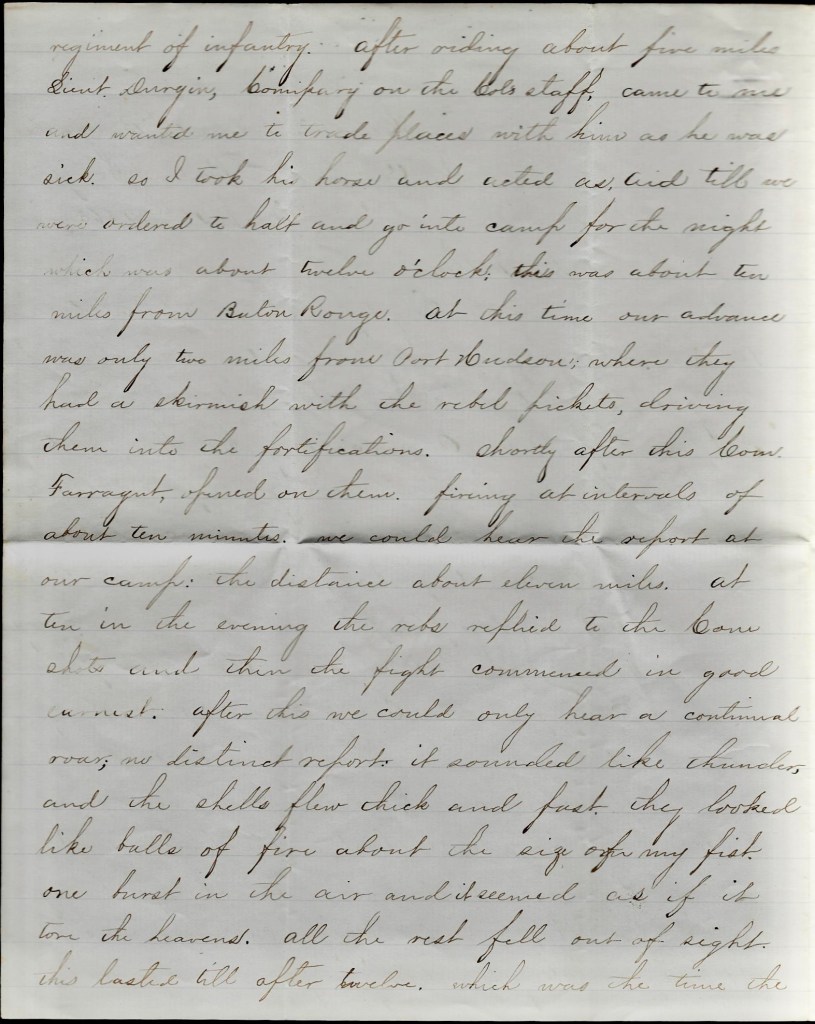 regiment of infantry. after riding about five miles
Lieut. Durgin, Company on the Cols staff, came to me
and wanted me to trade places with him as he was
sick. so I took his horse and acted as, aid till we
were ordered to halt and go into camp for the night
which was about twelve o'clock; this was about ten
miles from Baton Rouge. at this time our advance
was only two miles from Port Hudson; where they
had a skirmish with the rebel pickets, driving
them into the fortifications. Shortly after this Com.
Farragut, opened on them. firing at intervals of
about ten minutes. we could hear the report at
our camp: the distance about eleven miles. at
ten in the evening the rebs replied to the Com
shots and then the fight commenced in good
earnest. after this we could only hear a continual
roar; no distinct report: it sounded like thunder,
and the shells flew thick and fast. they looked
like balls of fire about the size of my fist.
one burst in the air and it seemed as if it
tore the heavens. all the rest fell out of sight.
this lasted till after twelve. which was the time the